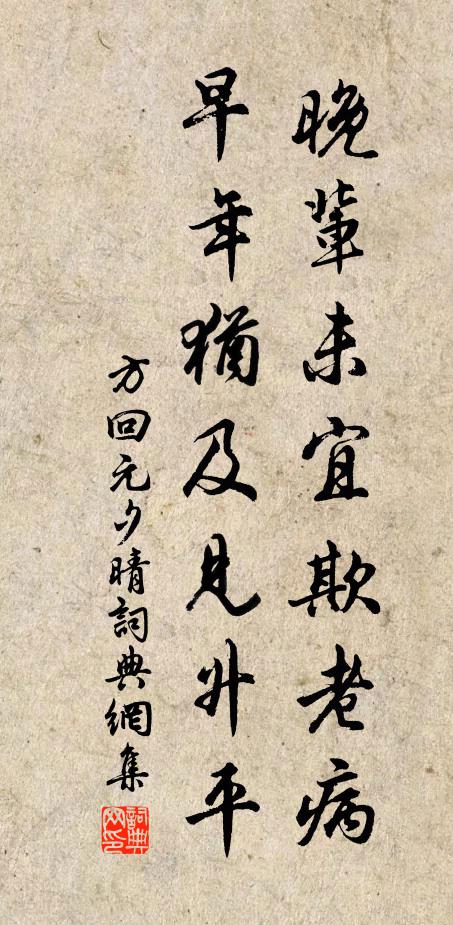 晚輩未宜欺老病
早年猶及見升平
方回元夕晴詞典網集
詞典网印